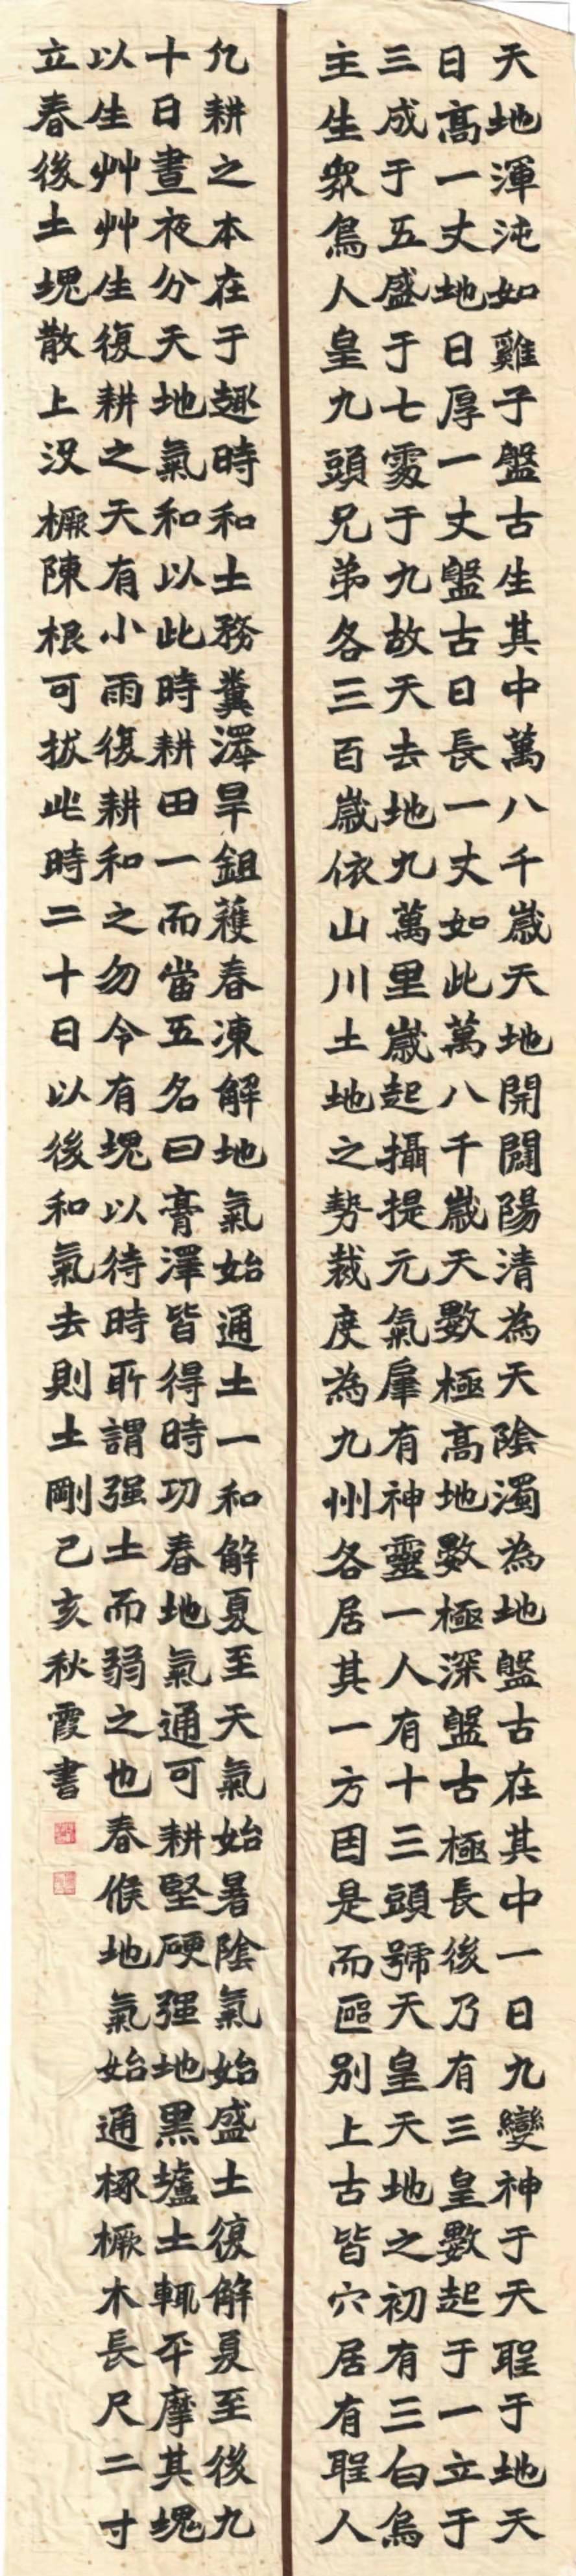 天地渾沌如雞子盤古生其中萬八千歲天地開闢陽清為天陰濁為地盤古在其中一日九變神于天聖于地天
日高一丈地日厚一丈盤古日長一丈如此萬八千歲天數極高地數極深盤古極長後乃有三皇數起于一立于
三成于五盛于七處于九故天去地九萬里歲起攝提元氣肇有神靈一人有十三頭號天皇天地之初有三白烏
主生眾鳥人皇九頭兄弟各三百歲依山川土地之勢裁度為九州各居其一方因是而區別上古皆穴居有聖人
凡耕之本在于趣時和土務糞澤旱鉏穫春凍解地氣始通土一和解夏至天氣始暑陰氣始盛土復解夏至後九
十日晝夜分天地氣和以此時耕田一而當五名曰膏澤皆得時功春地氣通可耕堅硬强地黑壚土輒平摩其塊
以生艸艸生復耕之天有小雨復耕和之勿令有塊以待時所謂强土而弱之也春候地氣始通椓橛木長尺二寸
立春後土塊散上沒橛陳根可拔此時二十日以後和氣去則土剛己亥秋霞書